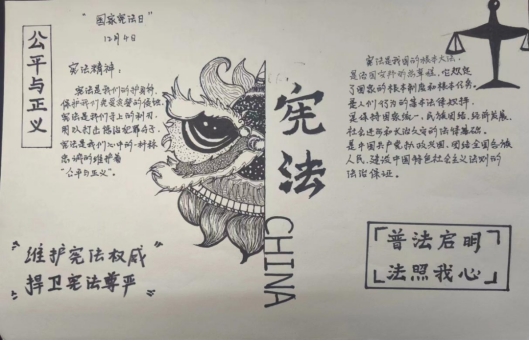 公平与正义
"国家宪法日"
12月4日
宪法精神：
宪法是我们的护身符，
保护我们免受突袭的侵蚀，
宪法是我们手上的利刃，
用以打击惩治犯罪分子，
宪法是我们心中的一种标
忠调的维护着
"公平与正义"。
"维护宪法权威
捍卫宪法尊严"
宪法
CHINA
宪法是我国的根本大法，
是治国安邦的总章程，它规定
了国家的根本制度和根本任务，
是人们行为的基本法律
是保持国家统一、民族团结、经济发展、
社会进步和长治久安的法律基础。
是中国共产党执政兴国、团结全国各族
人民，建设中国特色社会主义法则的
法治保证。
「普法启明
法照我心」